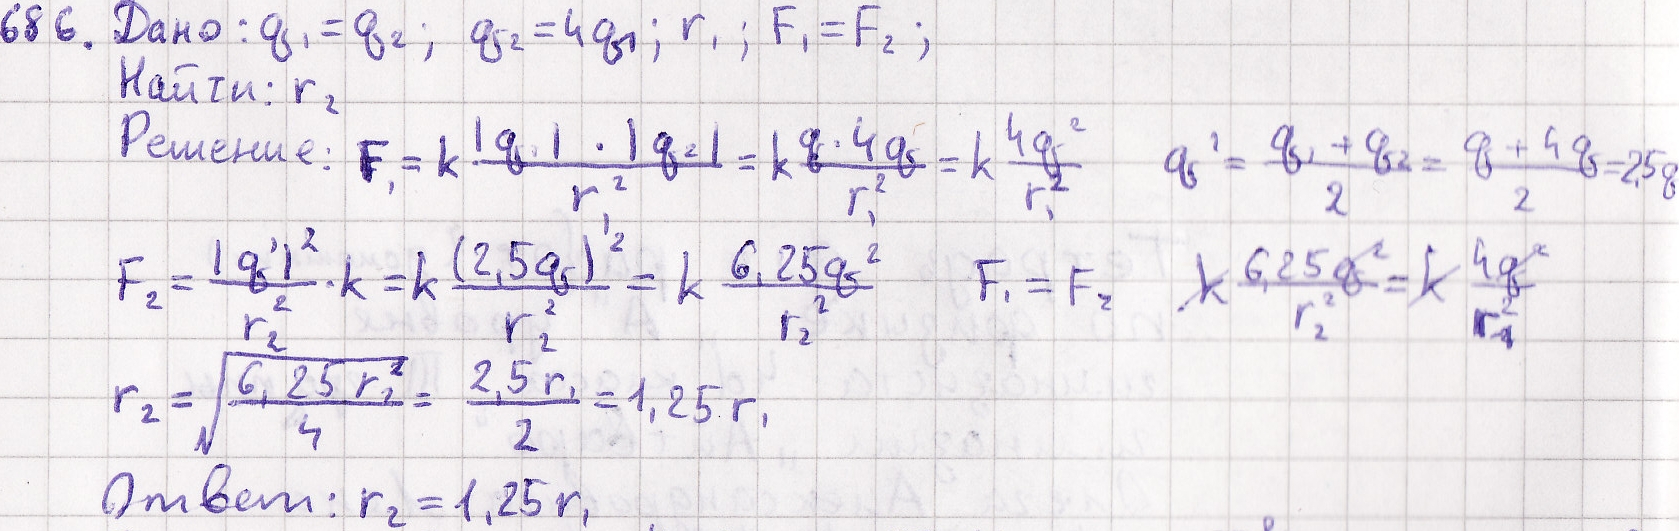 686. Дано: q₁ = q₂; q₂ = 4q₁; r₁; F₁ = F₂;
Найти: r₂
Решение: F₁ = k |q₁| · |q₂| / r₁² = k q · 4q / r₁² = k 4q² / r₁² q' = (q₁ + q₂) / 2 = (q + 4q) / 2 = 2,5q
F₂ = |q'|² / r₂² · k = k (2,5q)² / r₂² = k 6,25q² / r₂² F₁ = F₂ k 6,25q² / r₂² = k 4q² / r₁²
r₂ = √(6,25 r₂² / 4) = 2,5 r₁ / 2 = 1,25 r₁
Ответ: r₂ = 1,25 r₁